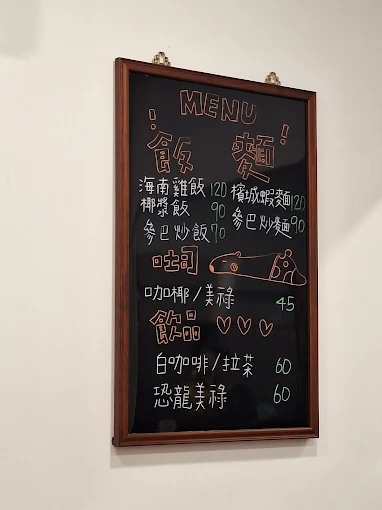 MENU
! 飯 麵 !
海南雞飯 120 檳城蝦麵 120
椰漿飯 90 參巴炒麵 90
參巴炒飯 70
吐司
咖椰/美祿 45
飲品
白咖啡/拉茶 60
恐龍美祿 60